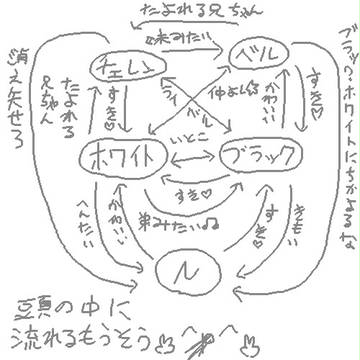 たよれる兄ちゃん
妹みたい
チェレン
ベル
消え失せろ
たよれる
兄ちゃん
すき♡
ライ
バル
仲よしこ
かわいい
すき♡
ブラック・ホワイトにちかよるな
ホワイト
いとこ
ブラック
すき♡
弟みたい♫
へんたい
かわいい
すき♡
きもい
N
頭の中に
流れるもうそう